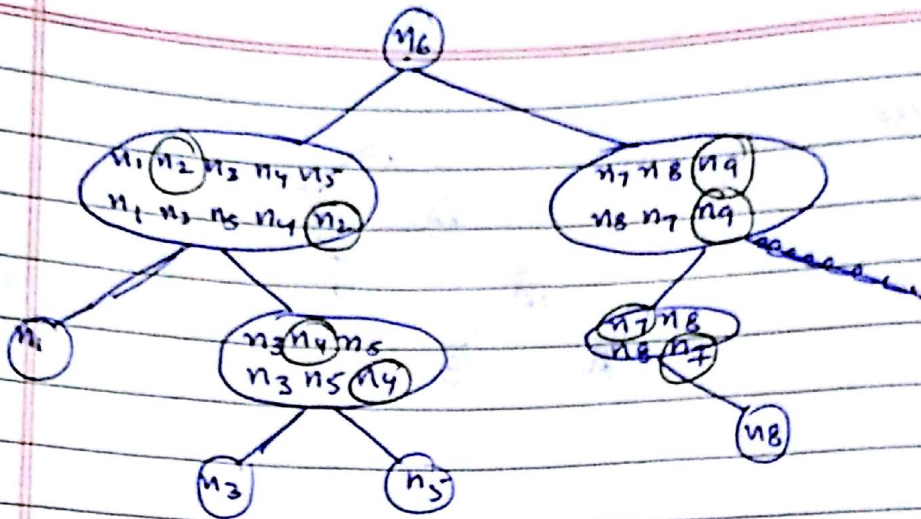 n6
n1 n2 n3 n4 n5
n1 n3 n5 n4 n2
n7 n8 n9
n8 n7 n9
n1
n3 n4 n5
n3 n5 n4
n7 n8
n8 n7
n8
n3
n5